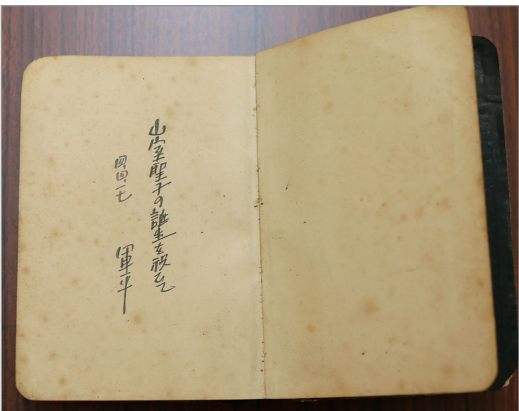 山室聖子の誕生を祝して
四四、一七
軍平